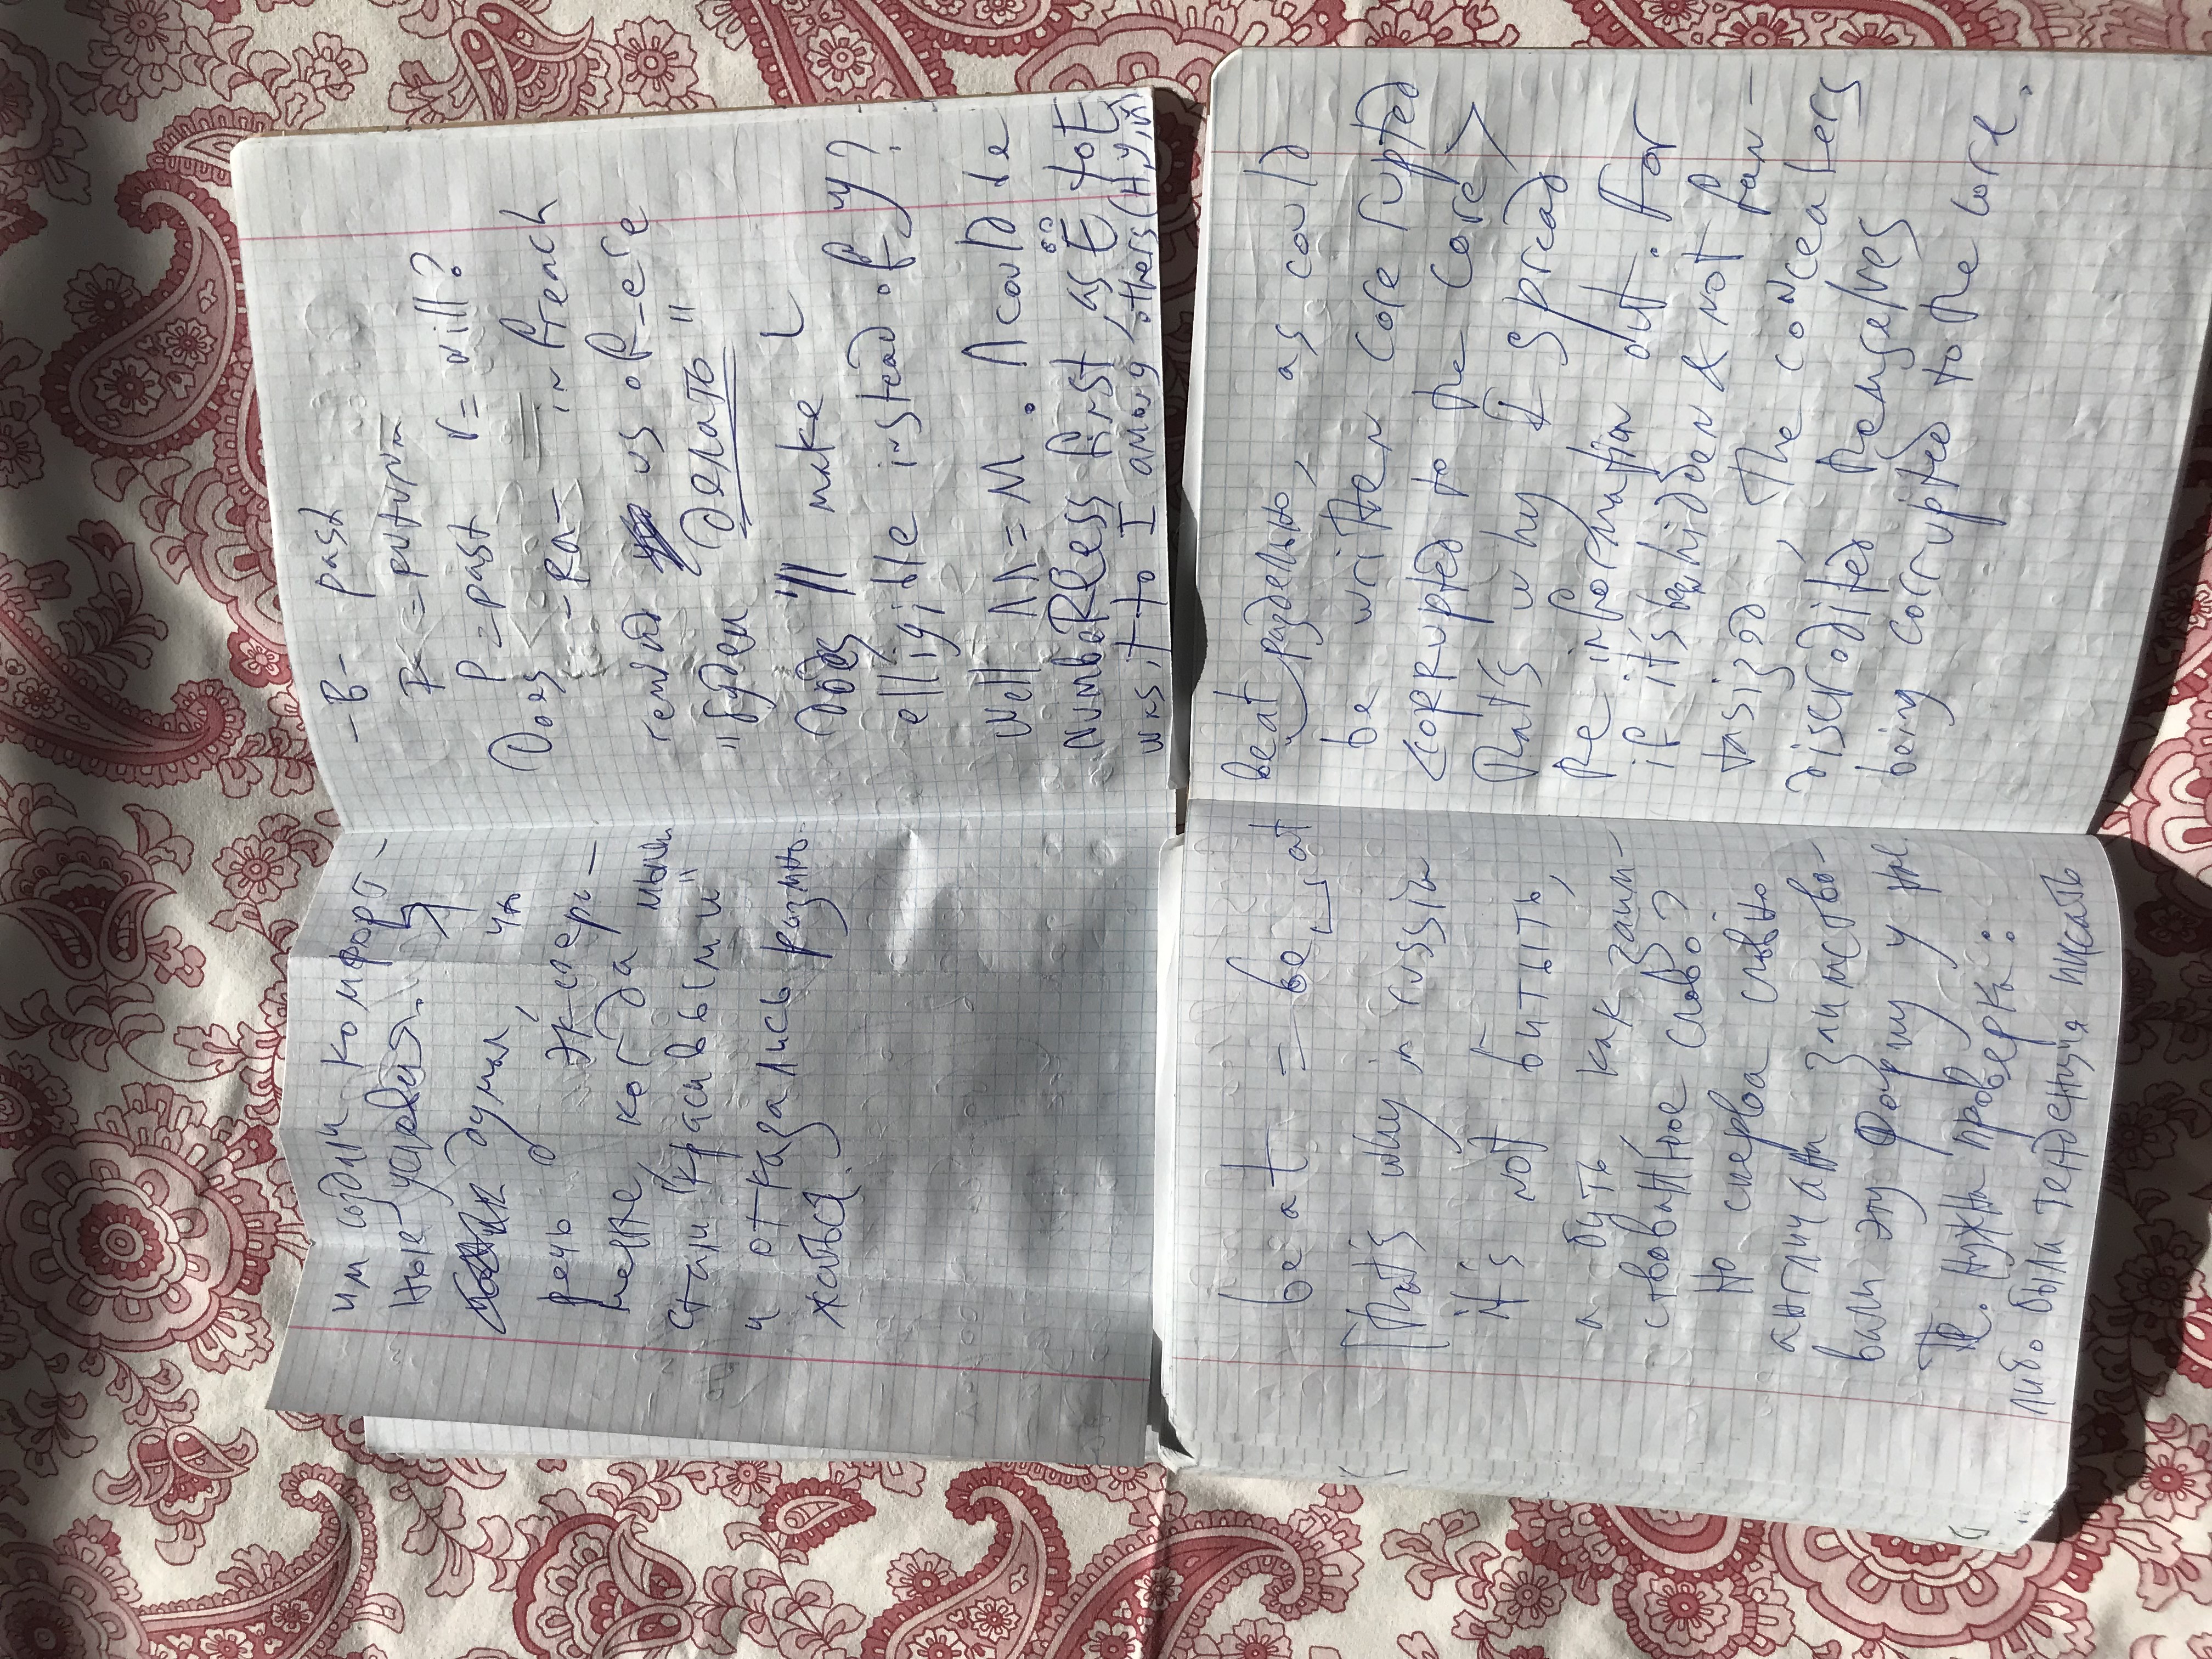 им создали комфорт-
ные условия. Я
думал, что
речь о экспери-
менте, когда мыши
стали "красивыми"
и отказались размно-
жаться.
-В- past
F = futurum
P = past r = will?
Does -RA- in french
remind us of -ere
"будем делать"
Does 'll make L
elligible instead of У?
Well ΛΛ = M. Λ could be
NUMBERless first, as Ё to E
was it to I among others (И, У,
beat = be␣at
That's why in russia
it's not битыть,
а буть, как заим-
ствованное слово?
Но сперва словно
англичани заимство-
вали эту форму у
Те. нужна проверка:
либо была тенденция писать
beat раздельно, as could
be written core rupted
<corrupted to the core>
That's why I spread
the information out. For
if it's been hidden & not fan-
tasized, the concealers
discrodited themselves
being corrupted to the core.